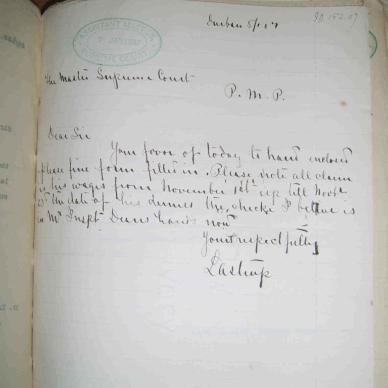 Durban 5/1/07
90.152.07
ASSISTANT MASTER
JAN 1907
SUPREME COURT
The Master Supreme Court
P. M. P.
Dear Sir
Your favor of today to hand enclosed
please fine form filled in. Please note all claim
is his wages from November 1st up till Novb
the date of his demise the cheke I believe is
in Mr Inspt Deans hands now
Yours respectfully